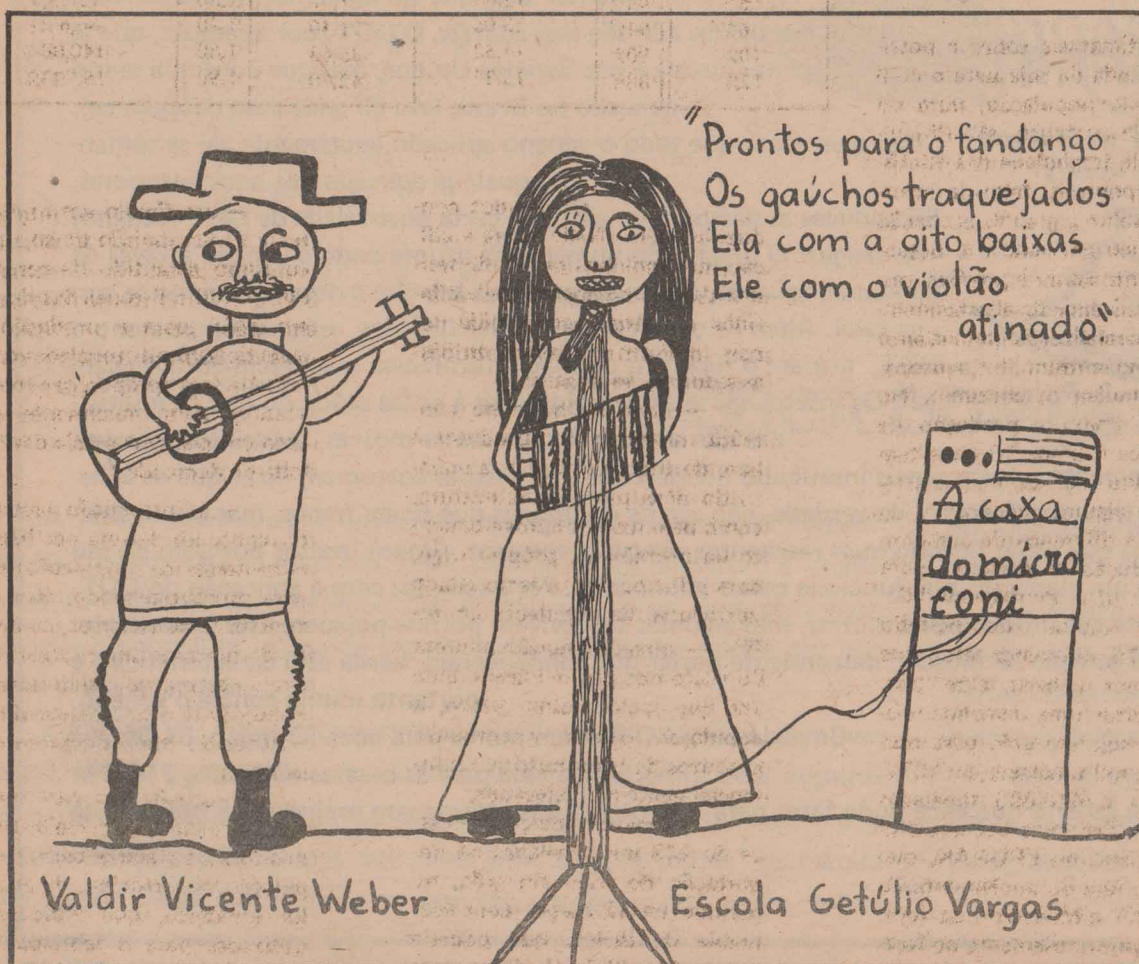 "Prontos para o fandango
Os gaúchos traquejados
Ela com a oito baixas
Ele com o violão
afinado"
A caxa
do micro
foni
Valdir Vicente Weber
Escola Getúlio Vargas